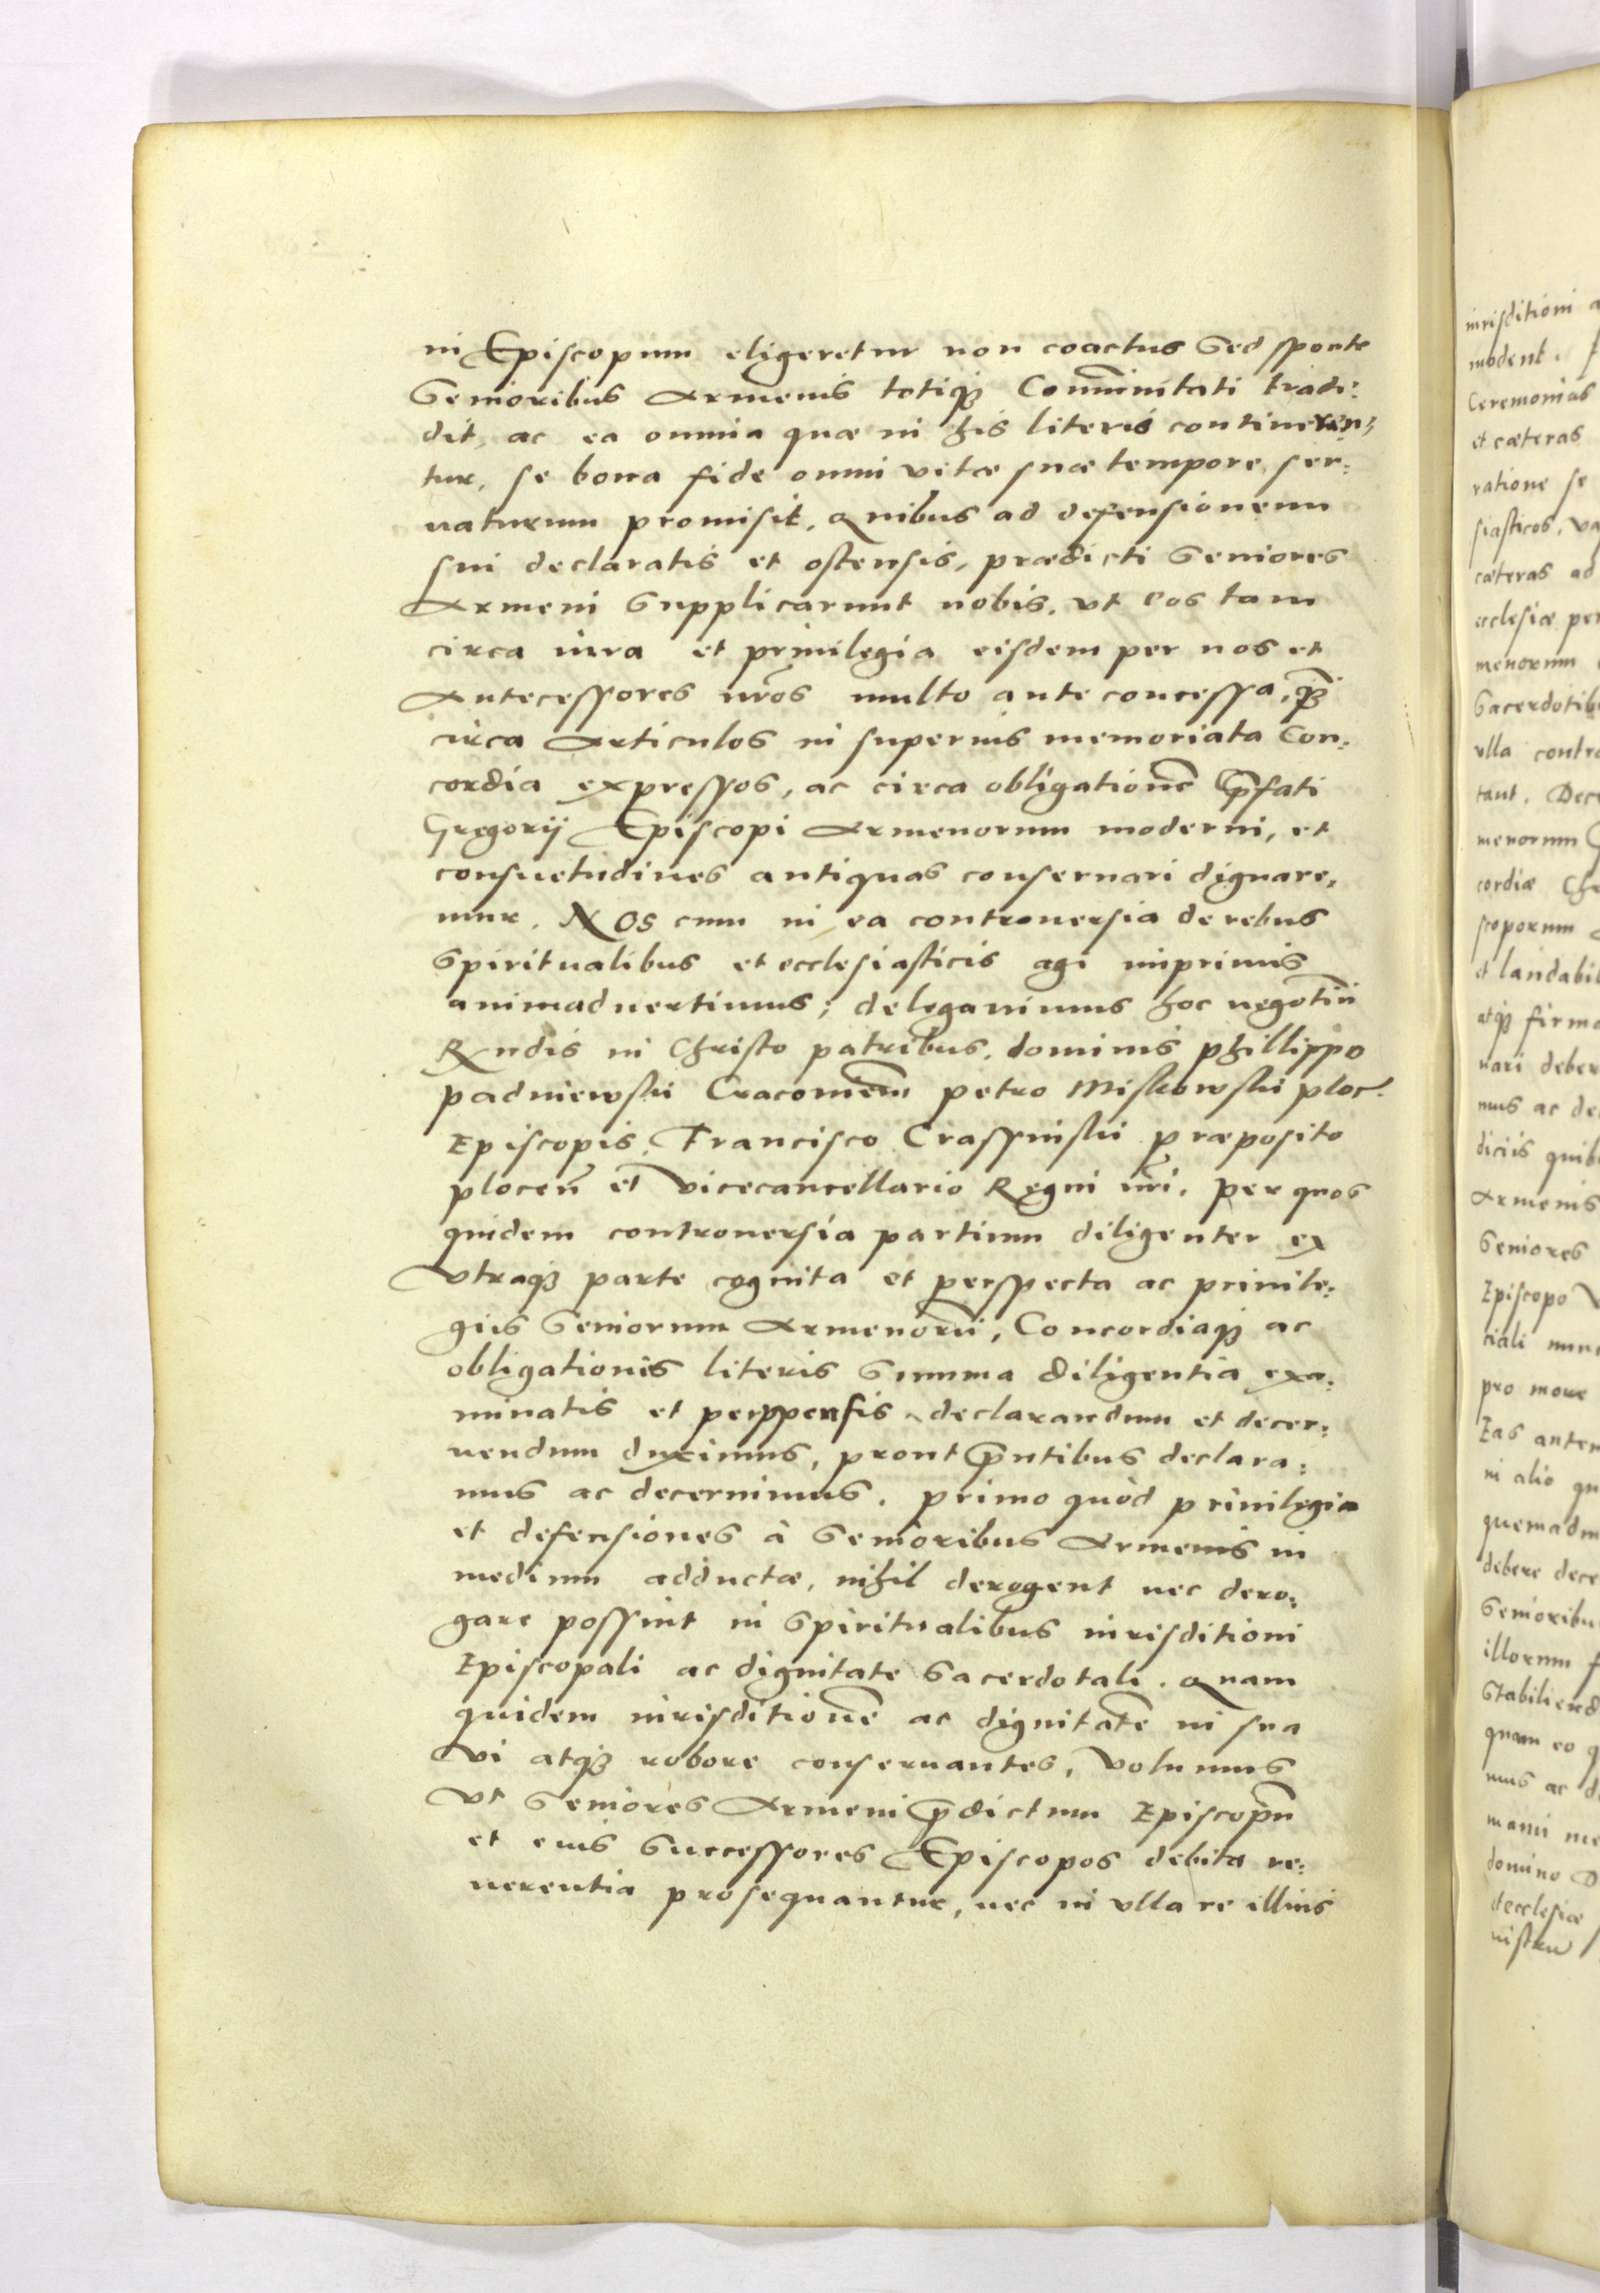 in Episcopum eligeretur non coactus Sed sponte
Senioribus Armenis totiq₃ Com̃unitati tradi:
dit, ac ea omnia quæ in his literis continëren:
tur, se bona fide omni vitæ suæ tempore ser:
uaturum promisit, Quibus ad defensionem
sui declaratis et ostensis, prædicti Seniores
Armeni Supplicarunt nobis, vt eos tam
circa iura et priuilegia eisdem per nos et
Antecessores nr̃os multo ante concessa, q̃₃
circa Articulos in superius memoriata Con:
cordia expressos, ac circa obligationẽ p̃fati
Gregorij Episcopi Armenorum moderni, et
consuetudines antiquas conseruari dignare,
mur. NOS cum in ea controuersia de rebus
Spiritualibus et ecclesiasticis agi imprimis
animaduertimus; delegauimus hoc negotiũ
Rndis in Christo patribus, dominis Phillippo
Padniewski Cracouieñ Petro Miskowski ploc.
Episcopis, Francisco Crassinski præposito
plocen̄ et Vicecancellario Regni nr̃i, per quos
quidem controuersia partium diligenter ex
Vtraq₃ parte cognita et perspecta ac priuile:
gijs Seniorum Armenorũ, Concordiaq₃ ac
obligationis literis Summa diligentia exa:
minatis et perppensis, declarandum et decer:
nendum duximus, prout p̃ntibus declara:
mus ac decernimus. Primo quòd priuilegia
et defensiones à Senioribus Armenis in
medium adductæ, nihil derogent nec dero:
gare possint in Spiritualibus iurisditioni
Episcopali ac dignitate Sacerdotali. Quam
quidem iurisditionẽ ac dignitatẽ in sua
Vi atq₃ robore conseruantes, Volumus
Vt Seniores Armeni p̃dictum Episcopũ
et eius Successores Episcopos debita re:
uerentia prosequantur, nec in vlla re illius
iurisditioni
Ceremonias
et cæteras
ratione se
siasticos,
cæteras ad
ecclesiæ
menorum
vlla
tant.
menorum
cordiæ
scoporum
atq₃
mus ac
Armenis
Seniores
Episcopo
pro more
in alio
Senioribu
illorum
quam eo
mus ac
domino